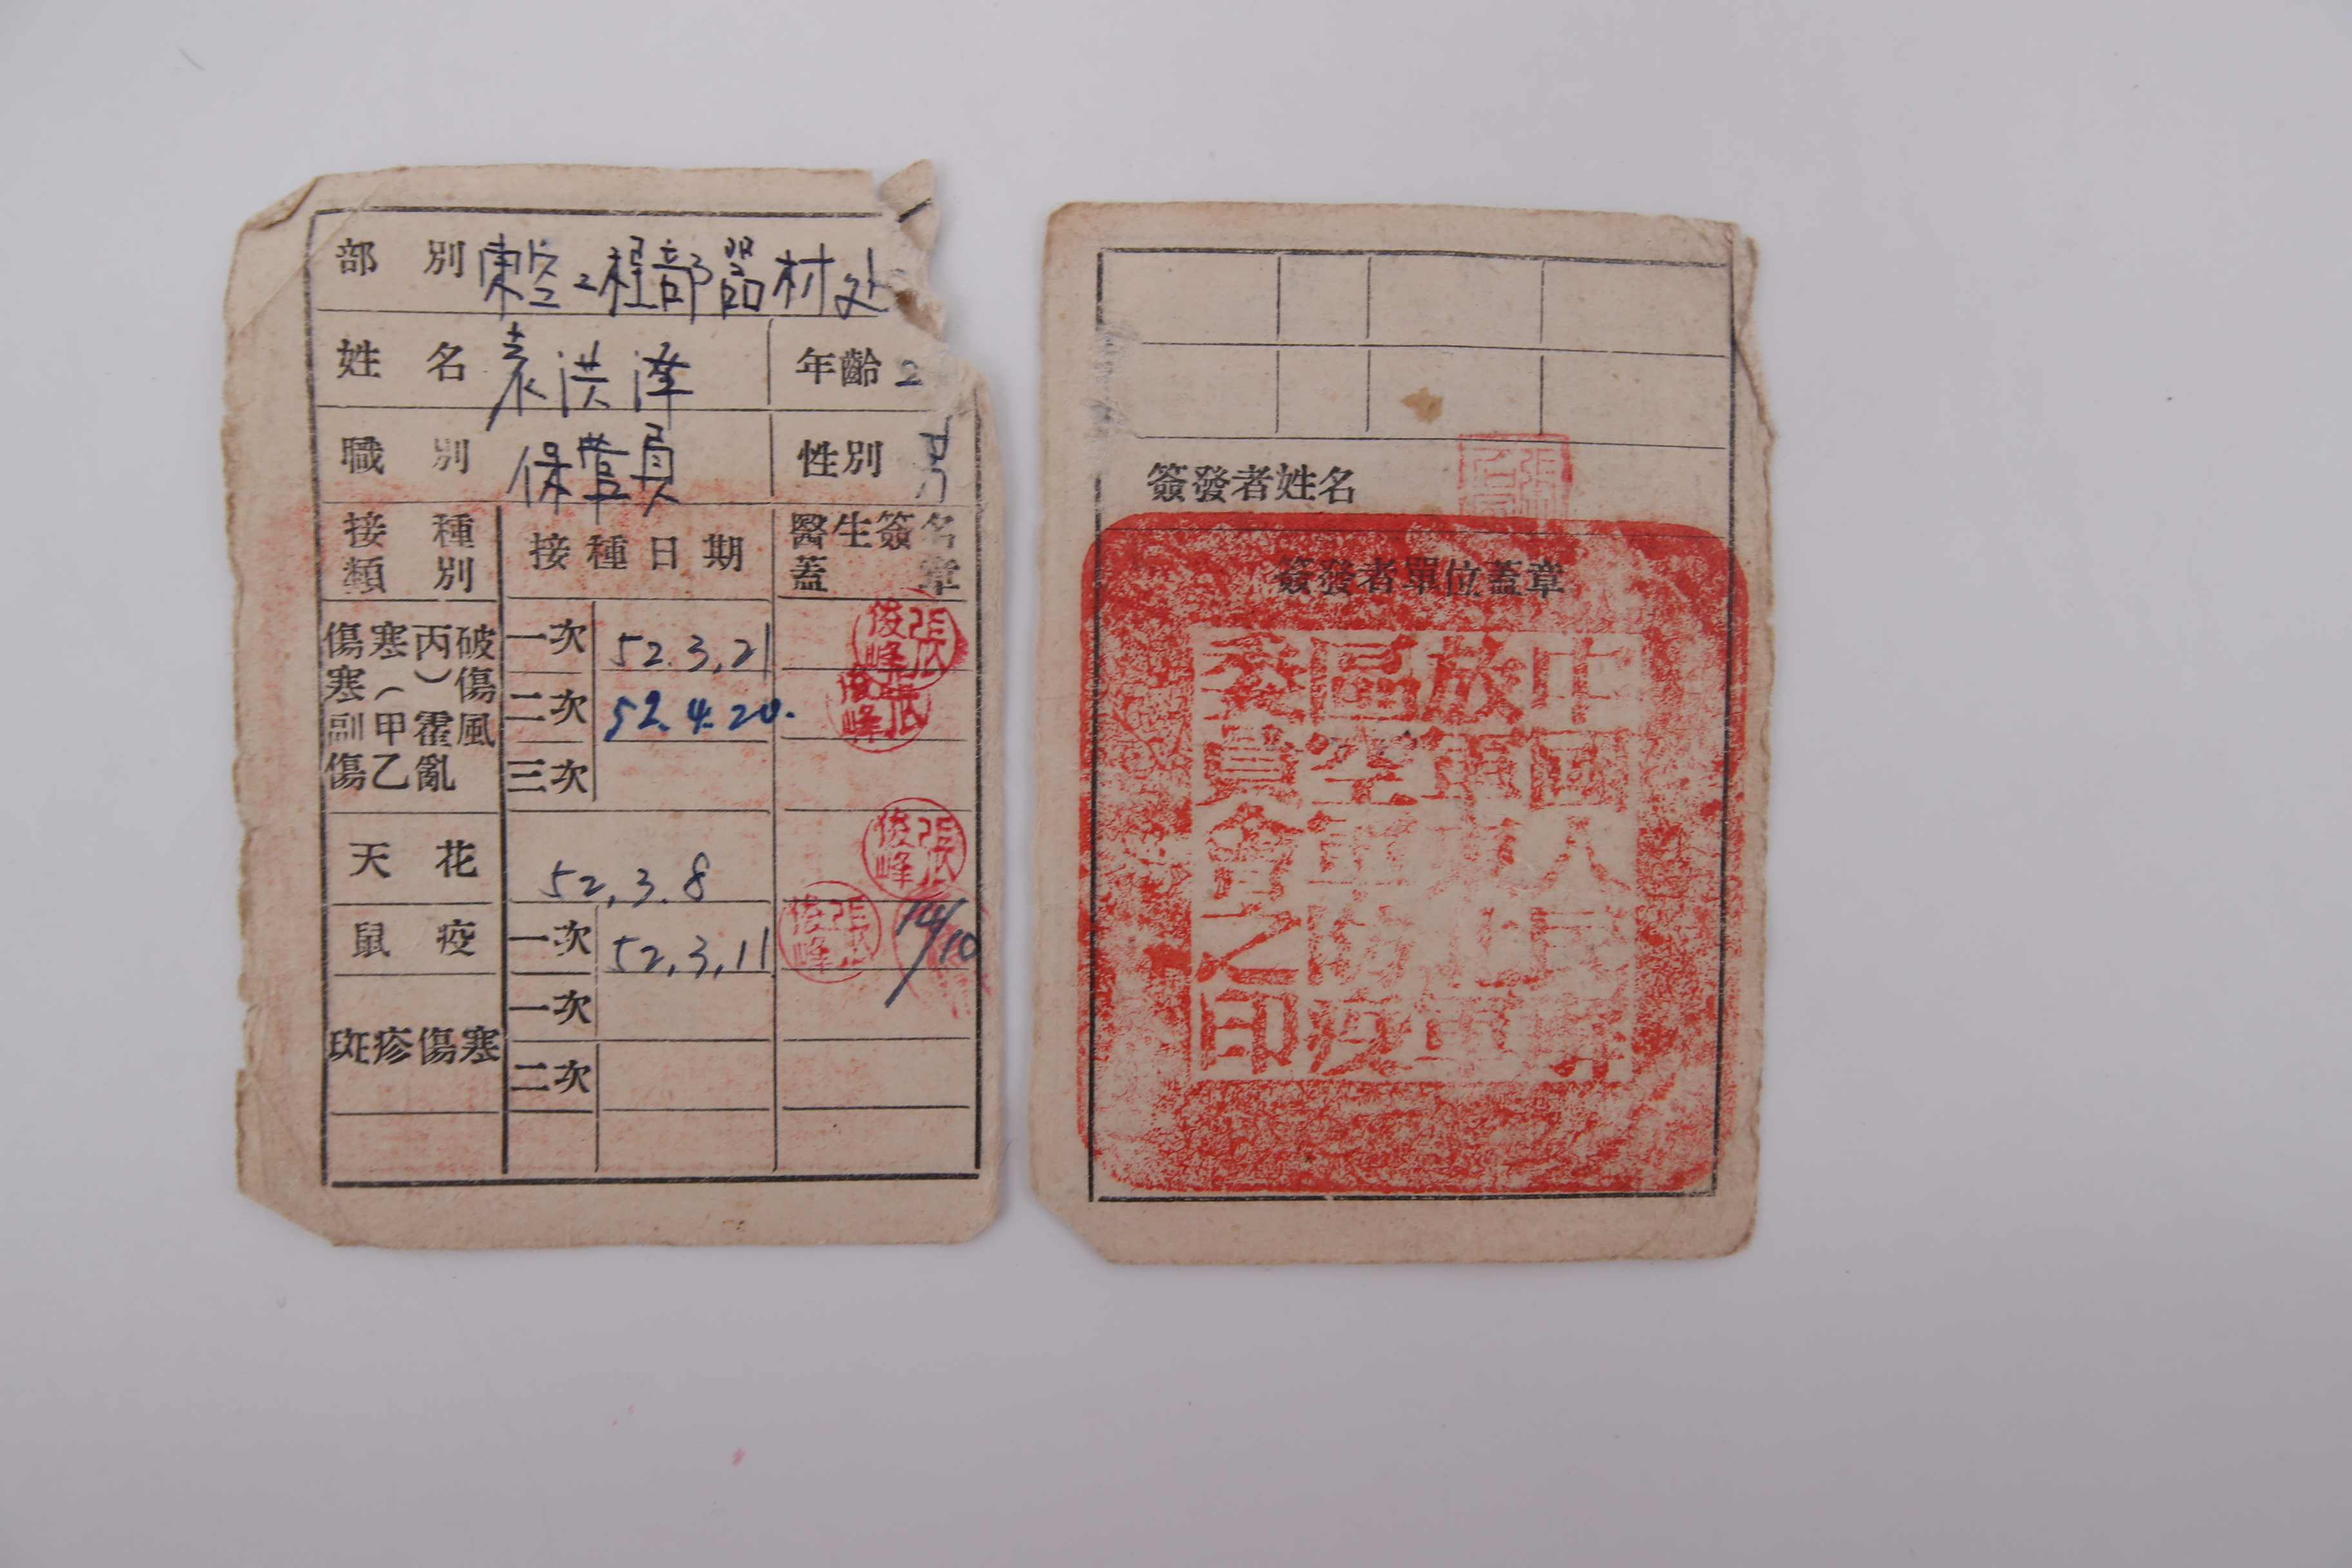 部別 東空工程部器材处
姓名 袁洪澤 年齡 2
職別 保管員 性別 男
接種類別 接種日期 醫生簽名蓋章
傷寒副傷寒(甲乙丙)霍亂破傷風
一次 52.3.21 張俊峰
二次 52.4.20. 張俊峰
三次
天花 52.3.8 張俊峰
鼠疫 一次 52.3.11 張俊峰 14/10
斑疹傷寒 一次
二次
簽發者姓名
簽發者單位蓋章
中國人民解
放軍東北軍
區空軍防疫
委員會之印